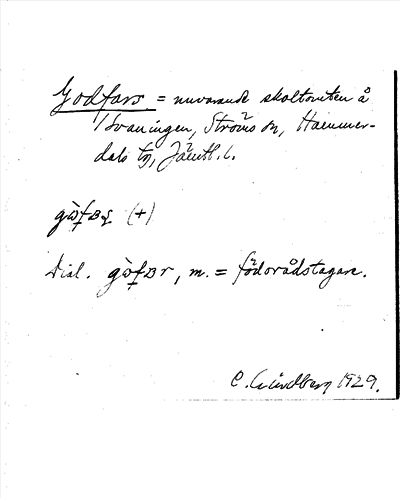 Godfars = nuvarande skoltomten å
Svaningen, Ströms sn, Hammer-
dals tg, Jämtl. l.
(+)
Dial. m. = födorådstagare.
C. Lindberg 1929.